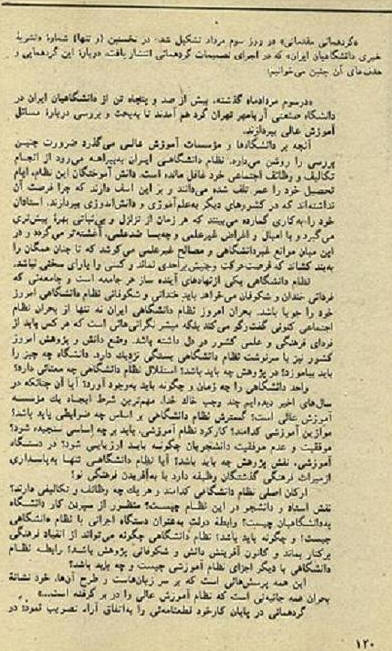 «گردهمائی مقدماتی» در روز سوم مرداد تشکیل شد. در نخستین (و تنها) شمارهٔ «نشریهٔ
خبری دانشگاهیان ایران» که در اجرای تصمیمات گردهمائی انتشار یافت، دربارهٔ این گردهمایی و
هدف‌های آن چنین می‌خوانیم:
«درسوم مردادماه گذشته، بیش از صد و پنجاه تن از دانشگاهیان ایران در
دانشگاه صنعتی آریامهر تهران گرد هم آمدند تا به‌بحث و بررسی دربارهٔ مسائل
آموزش عالی بپردازند.
آنچه بر دانشگاه‌ها و مؤسسات آموزش عالی می‌گذرد ضرورت چنین
بررسی را روشن می‌دارد. نظام دانشگاهی ایران به‌بیراهه می‌رود از انجام
تکالیف و وظائف اجتماعی خود غافل مانده است. دانش آموختگان این نظام، ایام
تحصیل خود را عمر تلف شده می‌دانند و بر این اسف دارند که چرا فرصت آن
نداشته‌اند که در کشورهای دیگر به‌علم‌آموزی و دانش‌اندوزی بپردازند. استادان
خود را به‌کاری گمارده می‌بینند که هر زمان از تزلزل و بی‌ثباتی بهرهٔ بیش‌تری
می‌گیرد و با امیال و اغراض غیرعلمی و چه‌بسا ضدعلمی، آغشته‌تر می‌گردد و در
این میان مراجع غیردانشگاهی و مصالح غیرعلمی می‌کوشد که تا چنان همگان را
به‌بند کشاند که فرصت حرکت و جنبش براحدی نماند و کسی را یارای سخنی نباشد.
نظام دانشگاهی یکی از نهادهای آینده ساز هر جامعه است و جامعه‌ئی که
فردائی خندان و شکوفان می‌خواهد باید خندانی و شکوفانی نظام دانشگاهی امروز
خود را جویا باشد. بحران امروز نظام دانشگاهی ایران نه تنها از بحران نظام
اجتماعی کنونی گفت‌وگو می‌کند بلکه مبشر نگرانی‌هائی است که هر کس باید از
فردای فرهنگی و علمی کشور در دل داشته باشد. وضع دانش و پژوهش امروز
کشور نیز با سرنوشت نظام دانشگاهی بستگی نزدیک دارد. دانشگاه چه چیز را
باید بیاموزد؟ در پژوهش چه باید باشد؟ استقلال نظام دانشگاهی چه معنائی دارد؟
واحد دانشگاهی را چه زمان و چگونه باید به‌وجود آورد؟ آیا آن چنانکه در
سال‌های اخیر دیده‌ایم چند وجب خاک خدا، مهم‌ترین شرط ایجاد یک مؤسسه
آموزش عالی است؟ گسترش نظام دانشگاهی بر اساس چه ضرابطی باید باشد؟
موازین آموزشی کدامند؟ کارکرد نظام آموزشی، باید بر چه اساسی سنجیده شود؟
موفقیت و عدم موفقیت دانشجویان چگونه باید ارزیابی شود؟ در دستگاه
آموزشی، نقش پژوهش چه باید باشد؟ آیا نظام دانشگاهی تنها به‌پاسداری
ازمیراث فرهنگی گذشتگان وظیفه دارد یا به‌آفریدن فرهنگی نو؟
ارکان اصلی نظام دانشگاهی کدامند و هر یک چه وظائف و تکالیفی دارند؟
نقش استاد و دانشجو در این نظام چیست؟ منظور از سپردن کار دانشگاه
به‌دانشگاهیان چیست؟ رابطهٔ دولت به‌عنوان دستگاه اجرائی با نظام دانشگاهی
چیست؟ و چگونه باید باشد؟ نظام دانشگاهی چگونه می‌تواند از انقیاد فرهنگی
برکنار بماند و کانون آفرینش دانش و شکوفائی پژوهش باشد؟ رابطهٔ نظام
دانشگاهی با دیگر اجزای نظام آموزشی چیست و چه باید باشد؟
این همه پرسش‌هائی است که بر سر زبان‌هاست و طرح آن‌ها، خود نشانهٔ
بحران همه جانبه‌ئی است که نظام آموزش عالی را در بر گرفته است...»
گردهمائی در پایان کارخود قطعنامه‌ئی را به‌اتفاق آراء تصویب نمود: در
۱۲۰